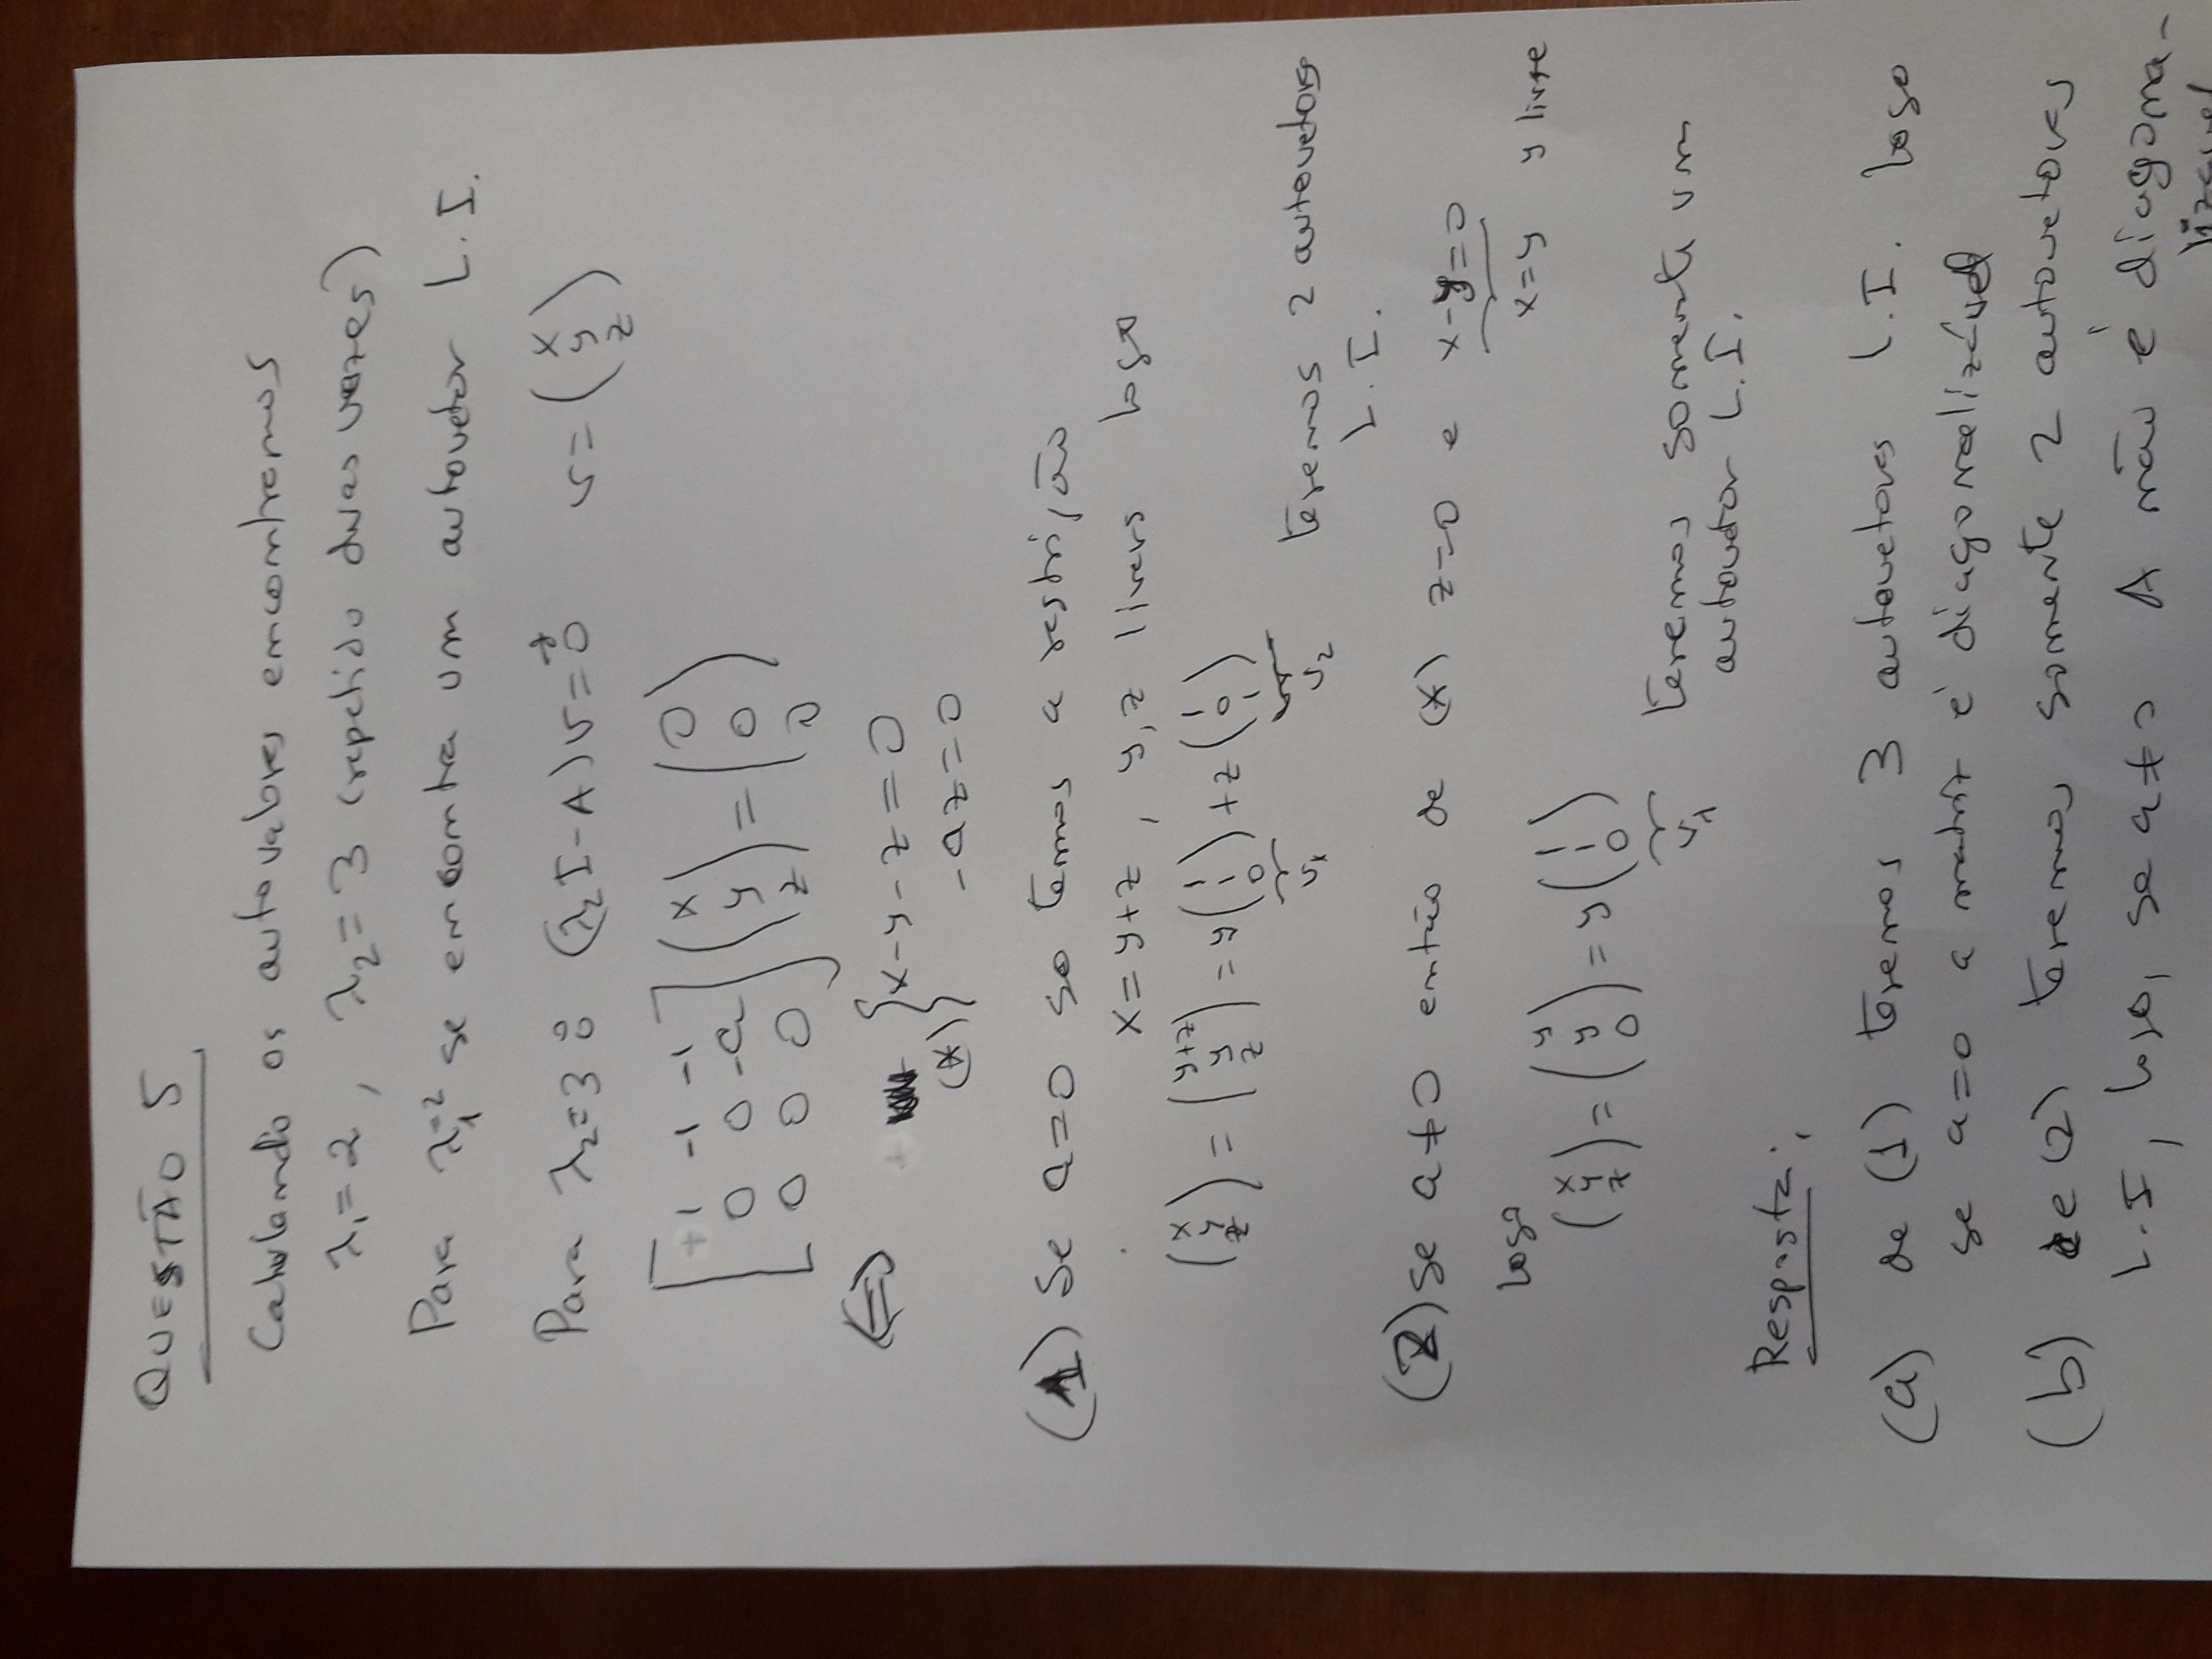 QUESTÃO 5
Calculando os autovalores encontramos
λ₁=2, λ₂=3 (repetido duas vezes)
Para λ₁=2 se encontra um autovetor L.I.
Para λ₂=3: (λ₂I-A)v=0⃗ v=(x y z)
[+1 -1 -1] (x) (0)
[0 0 -a] (y) = (0)
[0 0 0] (z) (0)
⟺ (*) { x-y-z=0
-az=0
(1) Se a=0 so temos a restrição
x=y+z, y,z livers logo
(x y z) = (y+z y z) = y(1 1 0) + z(1 0 1) teremos 2 autovetores
v₁ v₂ L.I.
(2) Se a≠0 então de (*) z=0 e x-y=0
x=y y livre
logo
(x y z) = (y y 0) = y(1 1 0) teremos somente um
v₁ autovetor L.I.
Resposta:
(a) de (1) teremos 3 autovetores L.I. logo
se a=0 a matriz é diagonalizável
(b) de (2) teremos somente 2 autovetores
L.I, logo, se a≠0 A não é diagona-
lizável